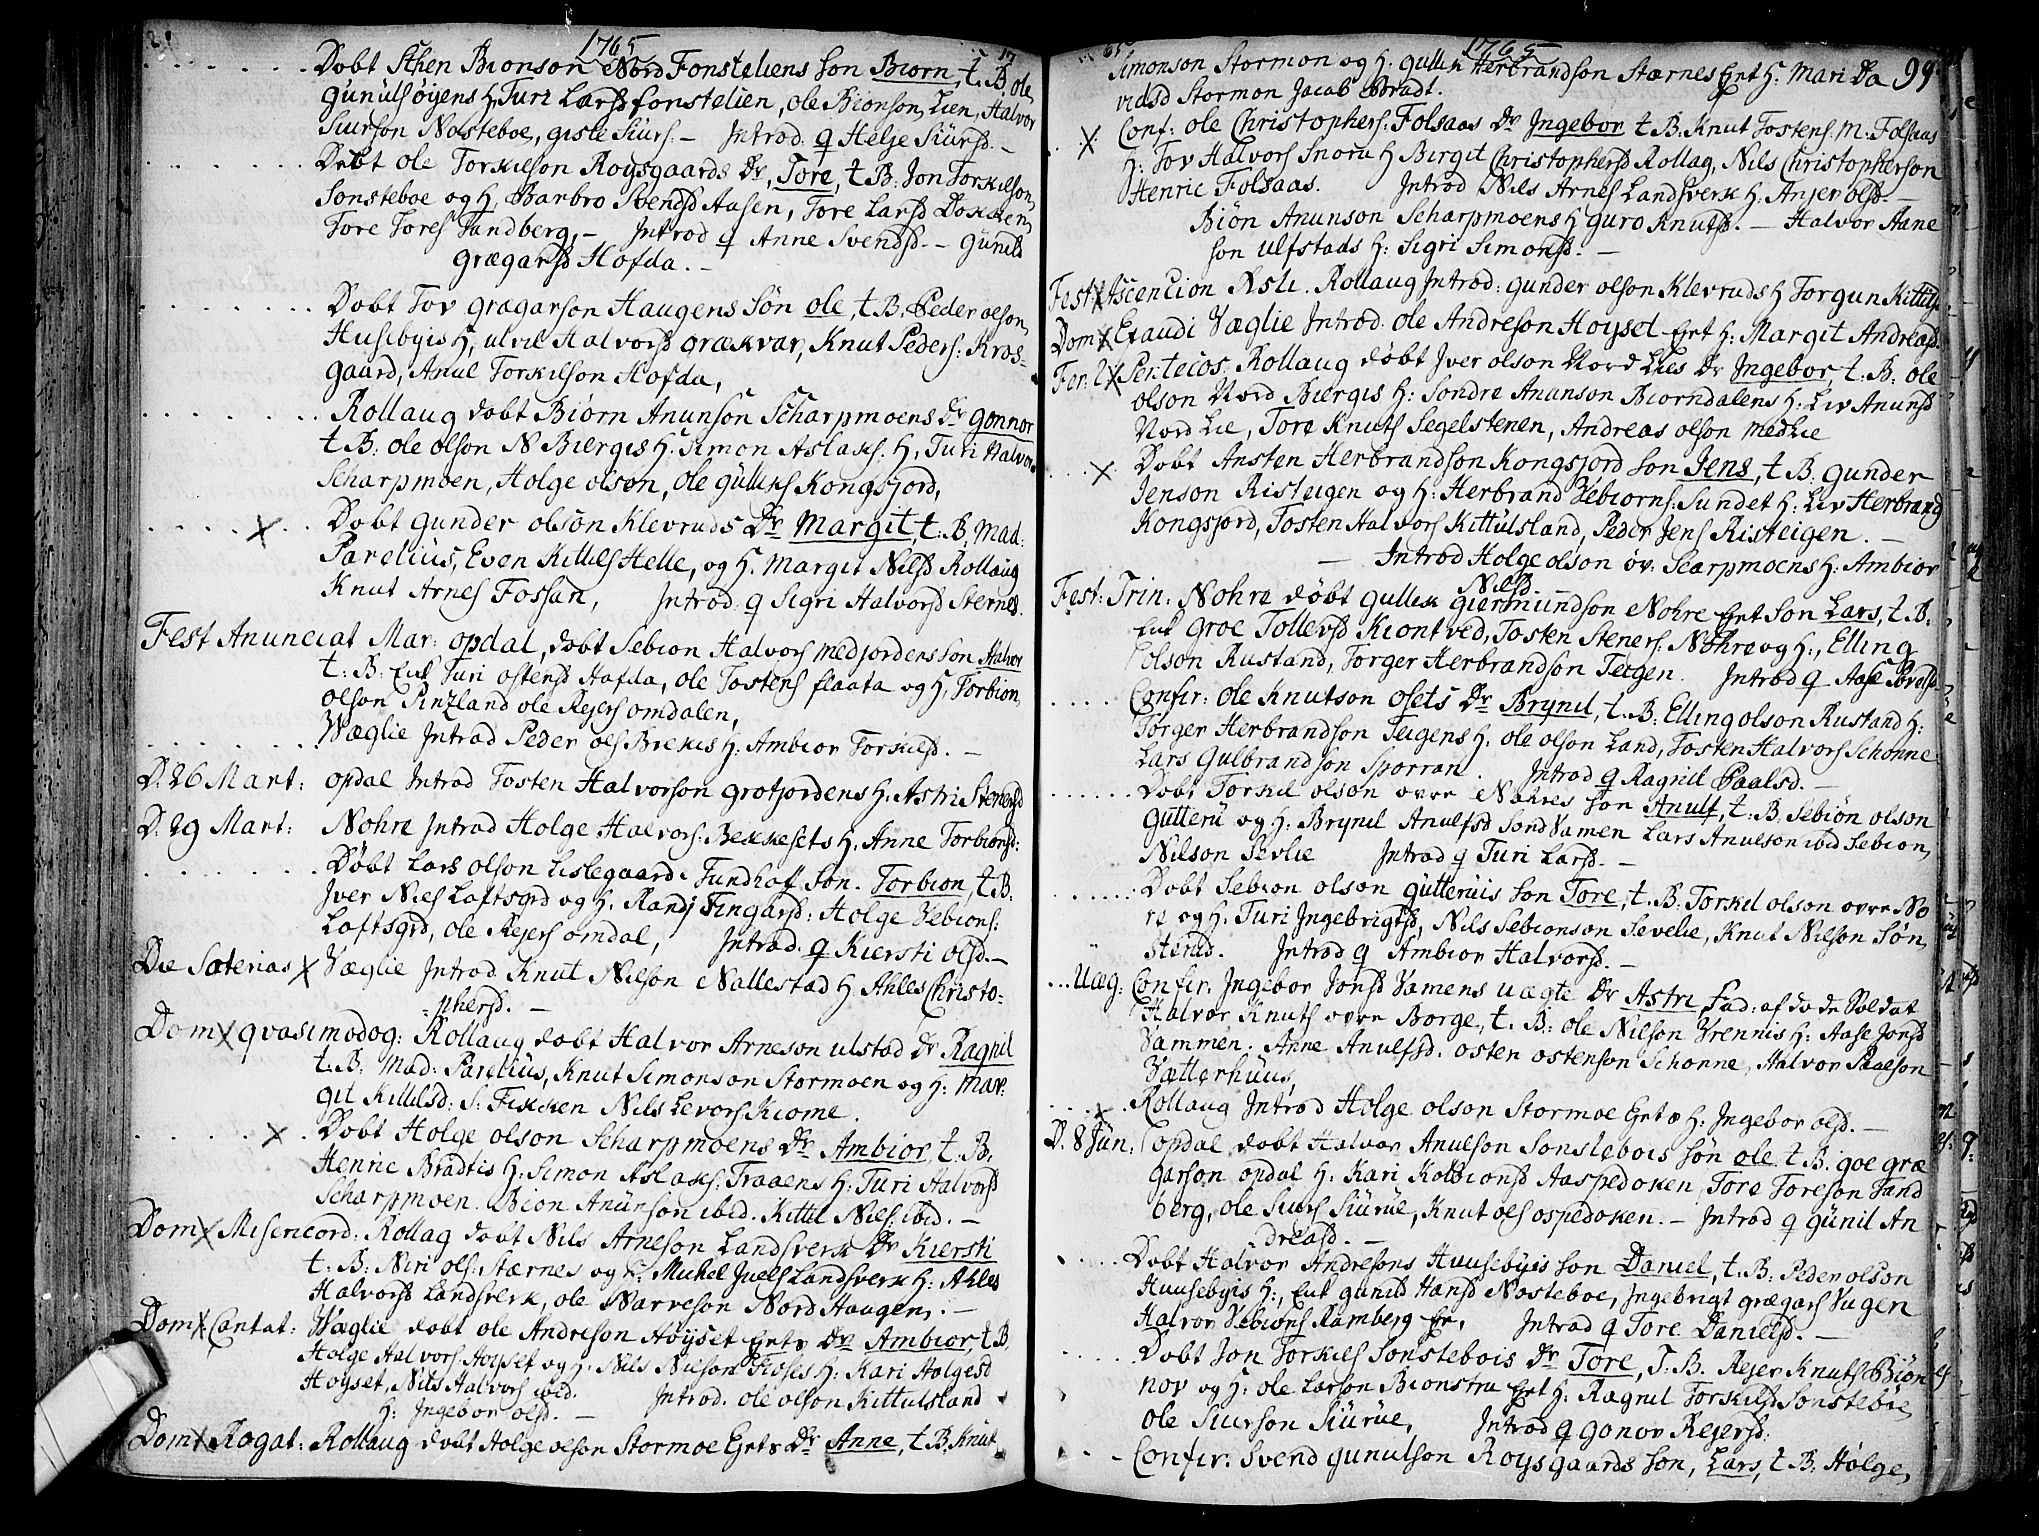 1765
Døbt Sthen Bionson Nord Fonsteliens son Biorn, t. B. ole
Gunulsøyens H. Turi Larsd fonstelien, ole Bionson Lien, Halvor
Siurson Nosteboe, giste Siurs. - Introd. q Helje Siursd. -
Døbt ole Torkilson Roysgaards Dr. Tore, t. B: Jon Torkilson
Sonsteboe og H. Barbro Svendsd Aasen, Tore Larsd Dokken
Tore Tores Tandberg, - Introd q Anne Svendsd. - Gunild
Grægarsd Hofda. -
Døbt Tov grægarson Haugens Søn ole, t. B: Peder olson
Husebyis H, ulvil Halvorsd grækvar, Knut Peders: Kros-
gaard, Anul Torkilson Hofda,
Rollaug døbt Biørn Anunson Scharpmoens Dr gonnor
t. B: ole olson N Biergis H. Simon Aslaks. H, Turi Halvors
Scharpmoen, Holge olson, ole gulliks Kongsjord,
Døbt gunder olson Klevruds Dr Margit, t. B, Mad:
Parelius, Even Killies Helle, og H. Margit Nilsd Rollaug
Knut Arnes Fossan, Introd: q Sigri Halvorsd Sternes.
Fest Anunciat Mar: opdal, døbt Sebion Halvors medjordens son Halvor
t. B: Enk Turi ostensd Hafda, ole Tostens flaata og H, Torbion
olson Pintzland ole Rejers omdalen,
Væglie Introd Peder ols Brekis H: Ambior Torkilsd. -
D. 26 Mart: opdal Introd Tosten Halvorson grotjordens H. Astri Stenersd
D. 29 Mart: Nohre Introd Holge Halvors: Bekkesets H. Anne Torbionsd:
Døbt Lars olson Lislegaard. Tundhaf Son. Torbion, t. B.
Iver Niels Loftsgrd og H. Randj Tingarsd: Holge Vebions:
Loftsgrd, ole Rejers omdal, Introd. q Kiersti olsd. -
Die Soterias X Væglie Introd Knut Nilson Nallestad H Ahles Christo-
phersd. -
Dom X qvasimodog: Rollaug døbt Halvor Arneson ulstad Dr Ragnil
t. B: Mad: Parelius, Knut Simonson Stormoen og H: Mar-
git Killilsd: S. Fekken Nils Levors Kiome.
X Døbt Holge olson Scharpmoens Dr Ambior, t. B.
Henric Bradtis H: Simon Aslaks: Traaens H: Turi Halvorsd
Scharpmoen. Bion Anunson ibid. Kittil Niels ibid. -
Dom X Misericord: Rollag døbt Nils Arneson Landsverk Dr Kiersti
t. B: Niri ols: Stærnes og H. Mickel Juels Landsverk H: Ahles
Halvorsd Landsverk, ole Narveson Nord Haugen. -
Dom X Cantat: Væglie døbt ole Andreson Høyset Ents Dr Ambior, t. B.
Holge Halvors Høyset og H. Nils Nielson Roses H: Kari Holgesd
Høyset, Nils Halvors ibid. Introd. ole olson Kittulsland
H: Ingebor olsd. -
Dom X Rogat: Rollaug døbt Holge olson Stormoe Ents Dr Anne, t. B. Knut
1765 99
Simonson Stormon og H. gullik Herbrandson Stærnes Ent H: Mari Da
vidsd Stormon Jacob Bradt.
X Conf: ole Christophers: Folsaas Dr Ingebor t. B: Knut Tostens: M: Folsaas
H: Tov Halvors Snoru H Birgit Christophersd Rollag, Nils Christopherson
Henric Folsaas. Introd Nils Arnes Landsverk H: Anjer olsd. -
Biön Anunson Scharpmoens H Guro Knutsd. - Halvor Aane
son ulfstads H: Sigri Simonsd. -
Fest X Ascencion Nsti. Rollaug Introd: gunder olson Klevruds H Torgun Kittilsd
Dom X Exaudi Væglie Introd. ole Andreson Hoyset Ent H: Margit Andreasd
Fer: 2 X Pentecos: Rollaug døbt Iver olson Nord Lies Dr Ingebor, t. B: ole
olson Nord Biergis H: Sondre Anunson Biorndalens H: Liv Anunsd
Nord Lie, Tore Knuts Segelstenen, Andreas olson medlie
X Døbt Ansten Herbrandson Kongsjord son Jens, t. B. gunder
Jenson Risteigen og H: Herbrand Vebiorns: Sundet H: Liv Herbrand
Kongsjord, Tosten Halvors Kittulsland, Peder Jens Risteigen. -
- Introd Holge olson øv: Scarpmoens H: Ambior
Nilsd.
Fest: Trin: Nohre døbt gullik giermundson Nohre Ent Son Lars, t. B.
Enk Groe Tollevsd Kiontved, Tosten Steners: Nohre og H:, Elling
olson Rustand, Torger Herbrandson Teigen. Introd q Aase
Confir: ole Knutson Osets Dr Brynil, t. B: Elling olson Rustand H:
Torger Herbrandson Teigens H. ole olson Land, Tosten Halvors Schonne
Lars Gulbrandson Sporran. Introd q Ragnil Paalsd. -
Døbt Torkil olson ovre Nohres son Anulf, t. B. Sebiön olson
Gutteru og H. Brynil Anulfsd Sønd Vamen Lars Anulson ibid Sebion
Nilson Sevlie Introd q Turi Larsd. -
Døbt Sebion olson gutteruis son Tore, t. B: Torkil olson ovre No
re og H: Turi Ingebrigtsd, Nils Sebionson Sevelie, Knut Nilson Søn
sterud. Introd q Ambior Halvorsd. -
... Uæg: Confir: Ingebor Jonsd Vamens uægte Dr Astri fad: af døde Soldat
Halvor Knuts ovre Borge, t. B: ole Nilson Vrennis H: Aase Jonsd
Vammen. Anne Anulfsd. Osten ostenson Schonne, Halvor Paalson
Vætterhuus,
X Rollaug Introd Holge olson Stormoe Ents H: Ingebor olsd. -
D. 8 Jun: Opdal døbt Halvor Anulson Sonstebois søn ole t. B. goe græ
garson opdal H: Kari Kolbionsd Aaspedoken, Tore Toreson Tand
berg, ole Siurs Siurue, Knut ols ospedoken. - Introd q gunil An
dreasd. -
Døbt Halvor Andresons Huusebyis son Daniel, t. B: Peder olson
Huusebyis H:, Enk gunild Hansd Nosteboe, Ingebrigt grægars Vugen
Halvor Vebions Ramberg En, Introd q Tore Danielsd. -
Døbt Jon Torkils Sonstebois Dr Tore, T. B. Rejer Knuts Biön
nov og H: ole Larson Bionstru Ent H: Ragnil Torkilsd Sonsteboe
ole Siurson Siurue, Introd q gonor Rejersd.
Confir: Svend gunulson Roysgaards son, Lars, t. B: Holge